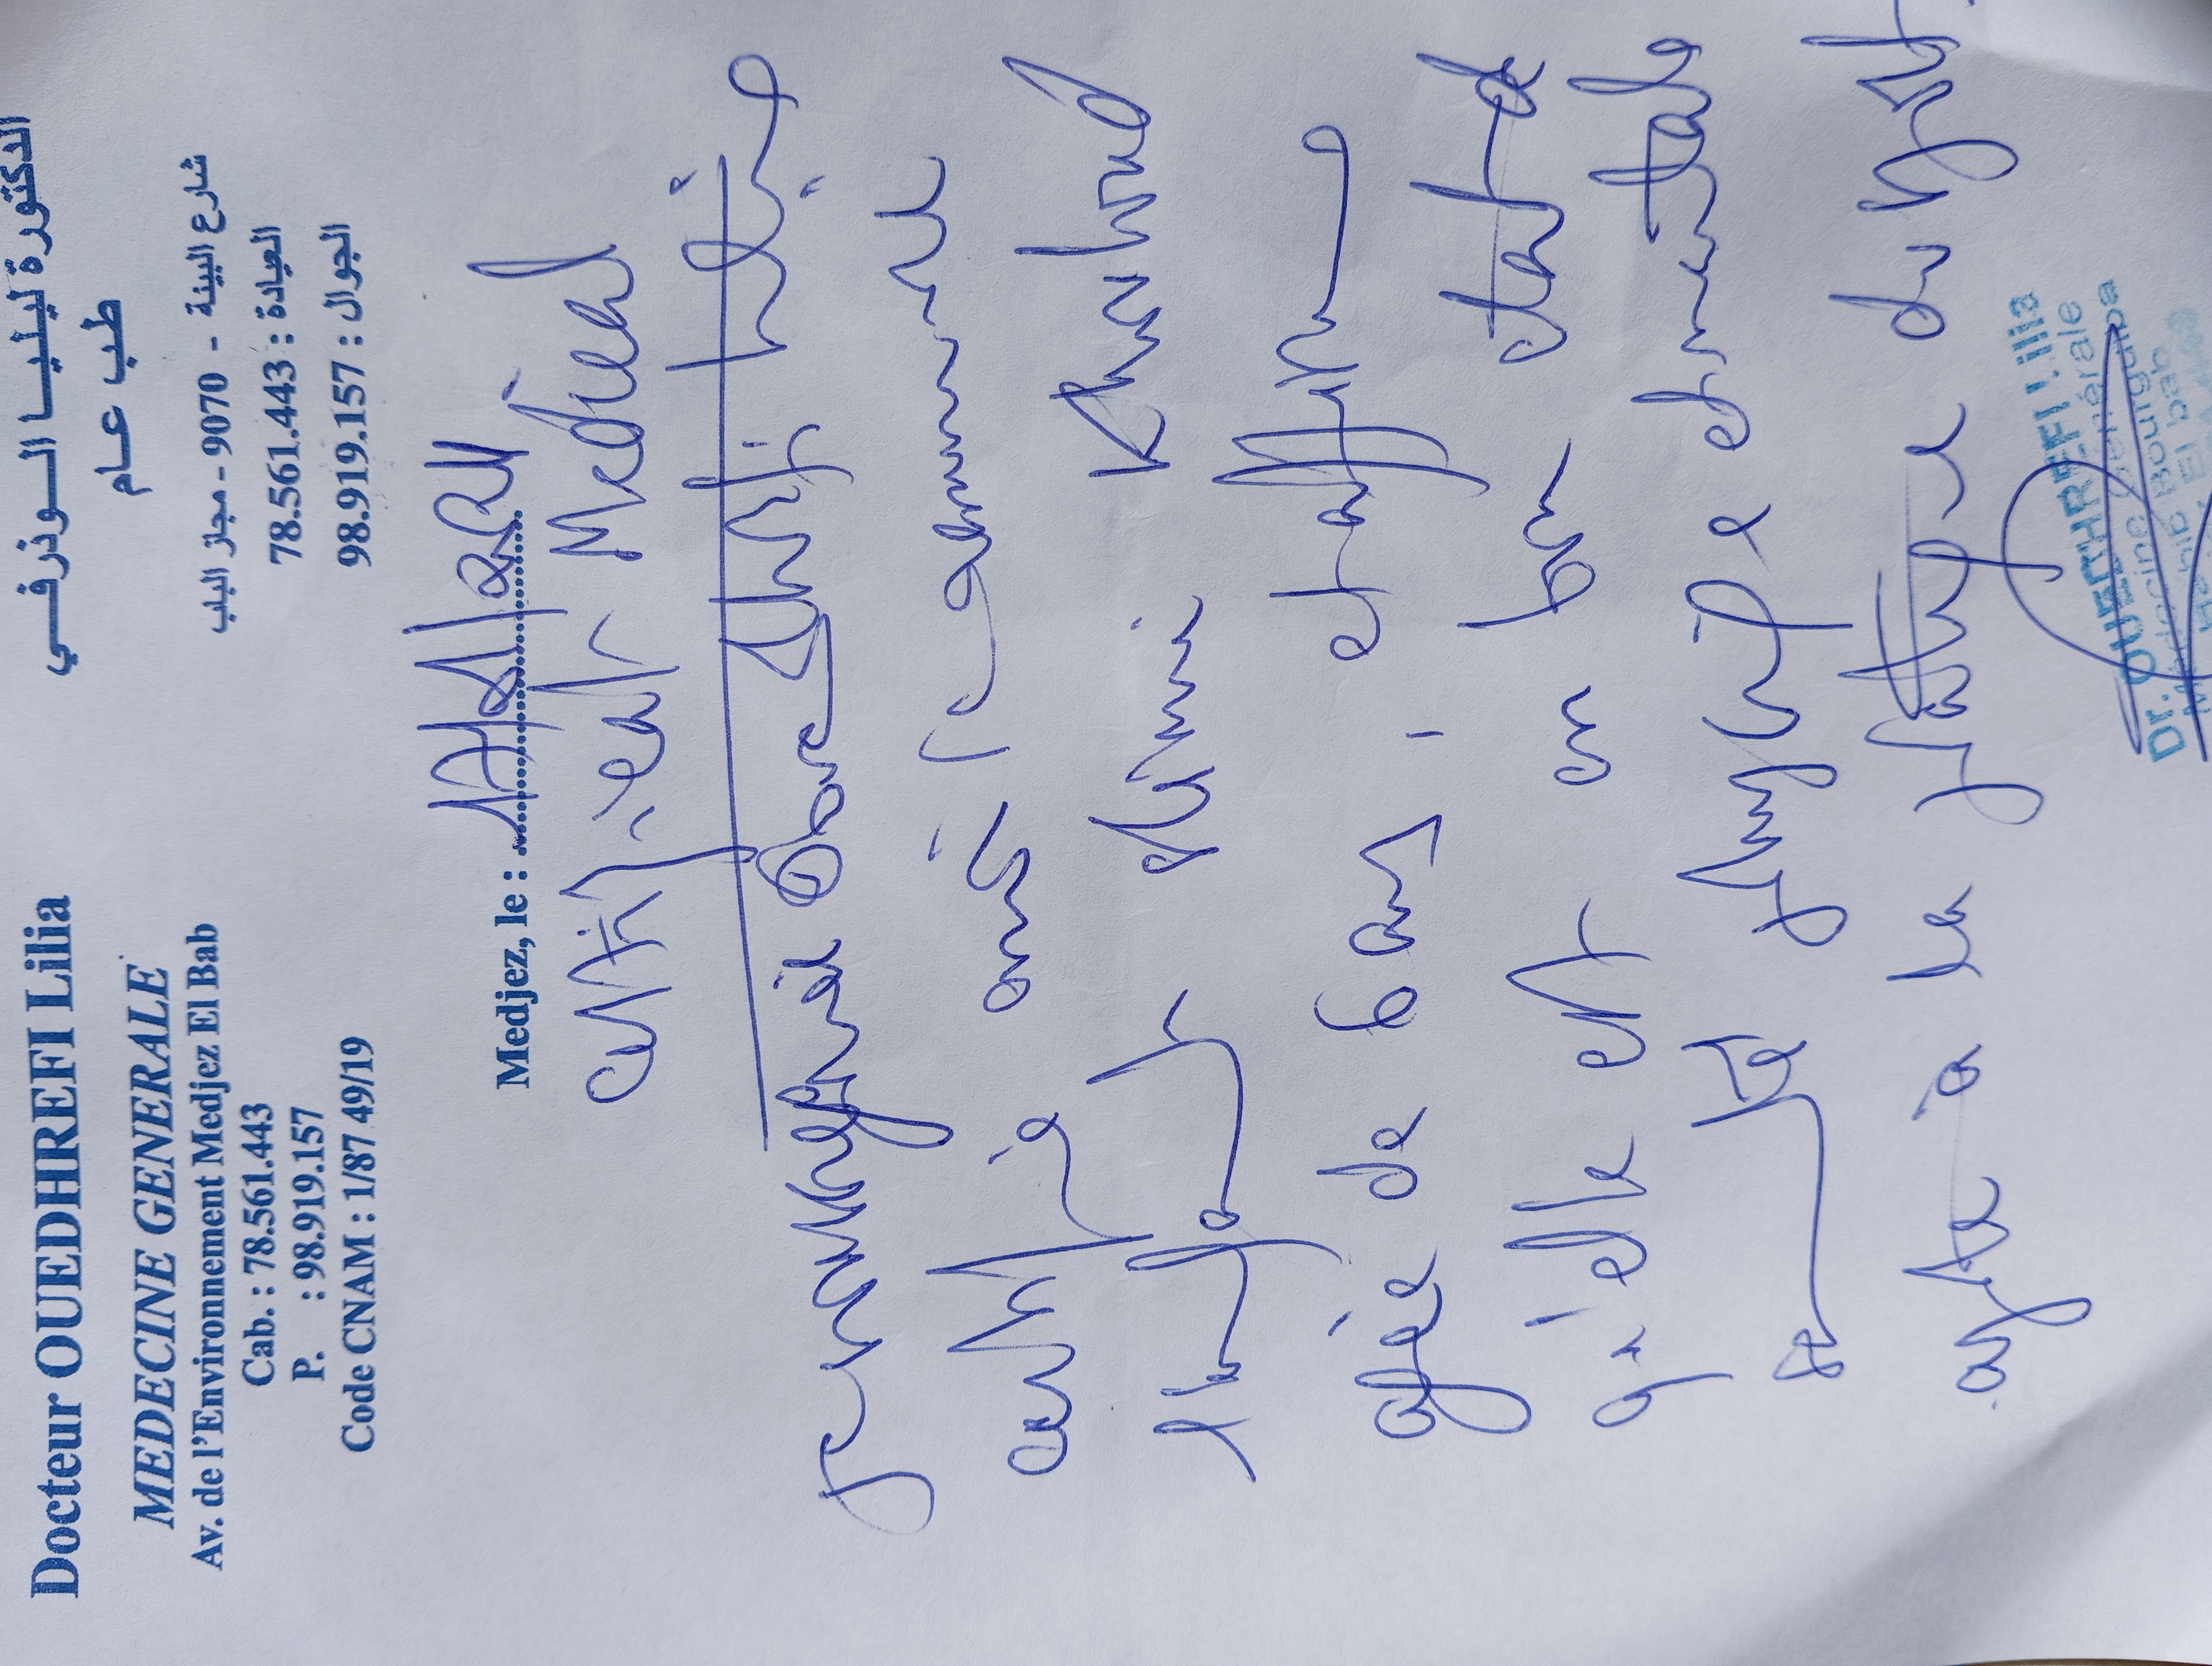 Docteur OUEDHREFI Lilia
MEDECINE GENERALE
Av. de l'Environnement Medjez El Bab
Cab. : 78.561.443
P. : 98.919.157
Code CNAM : 1/87 49/19
الدكتورة ليليا الوذرفي
طب عام
شارع البيئة - 9070 - مجاز الباب
العيادة : 78.561.443
الجوال : 98.919.157
Medjez, le :
certificat Médical
je Docteur
certifie avoir examiné
l'enfant Khouloud
agée de 6 ans
qu'elle est en bon état de
santé physique et mentale
apte à la pratique du sport.
Dr. OUEDHREFI Lilia
Médecine Générale